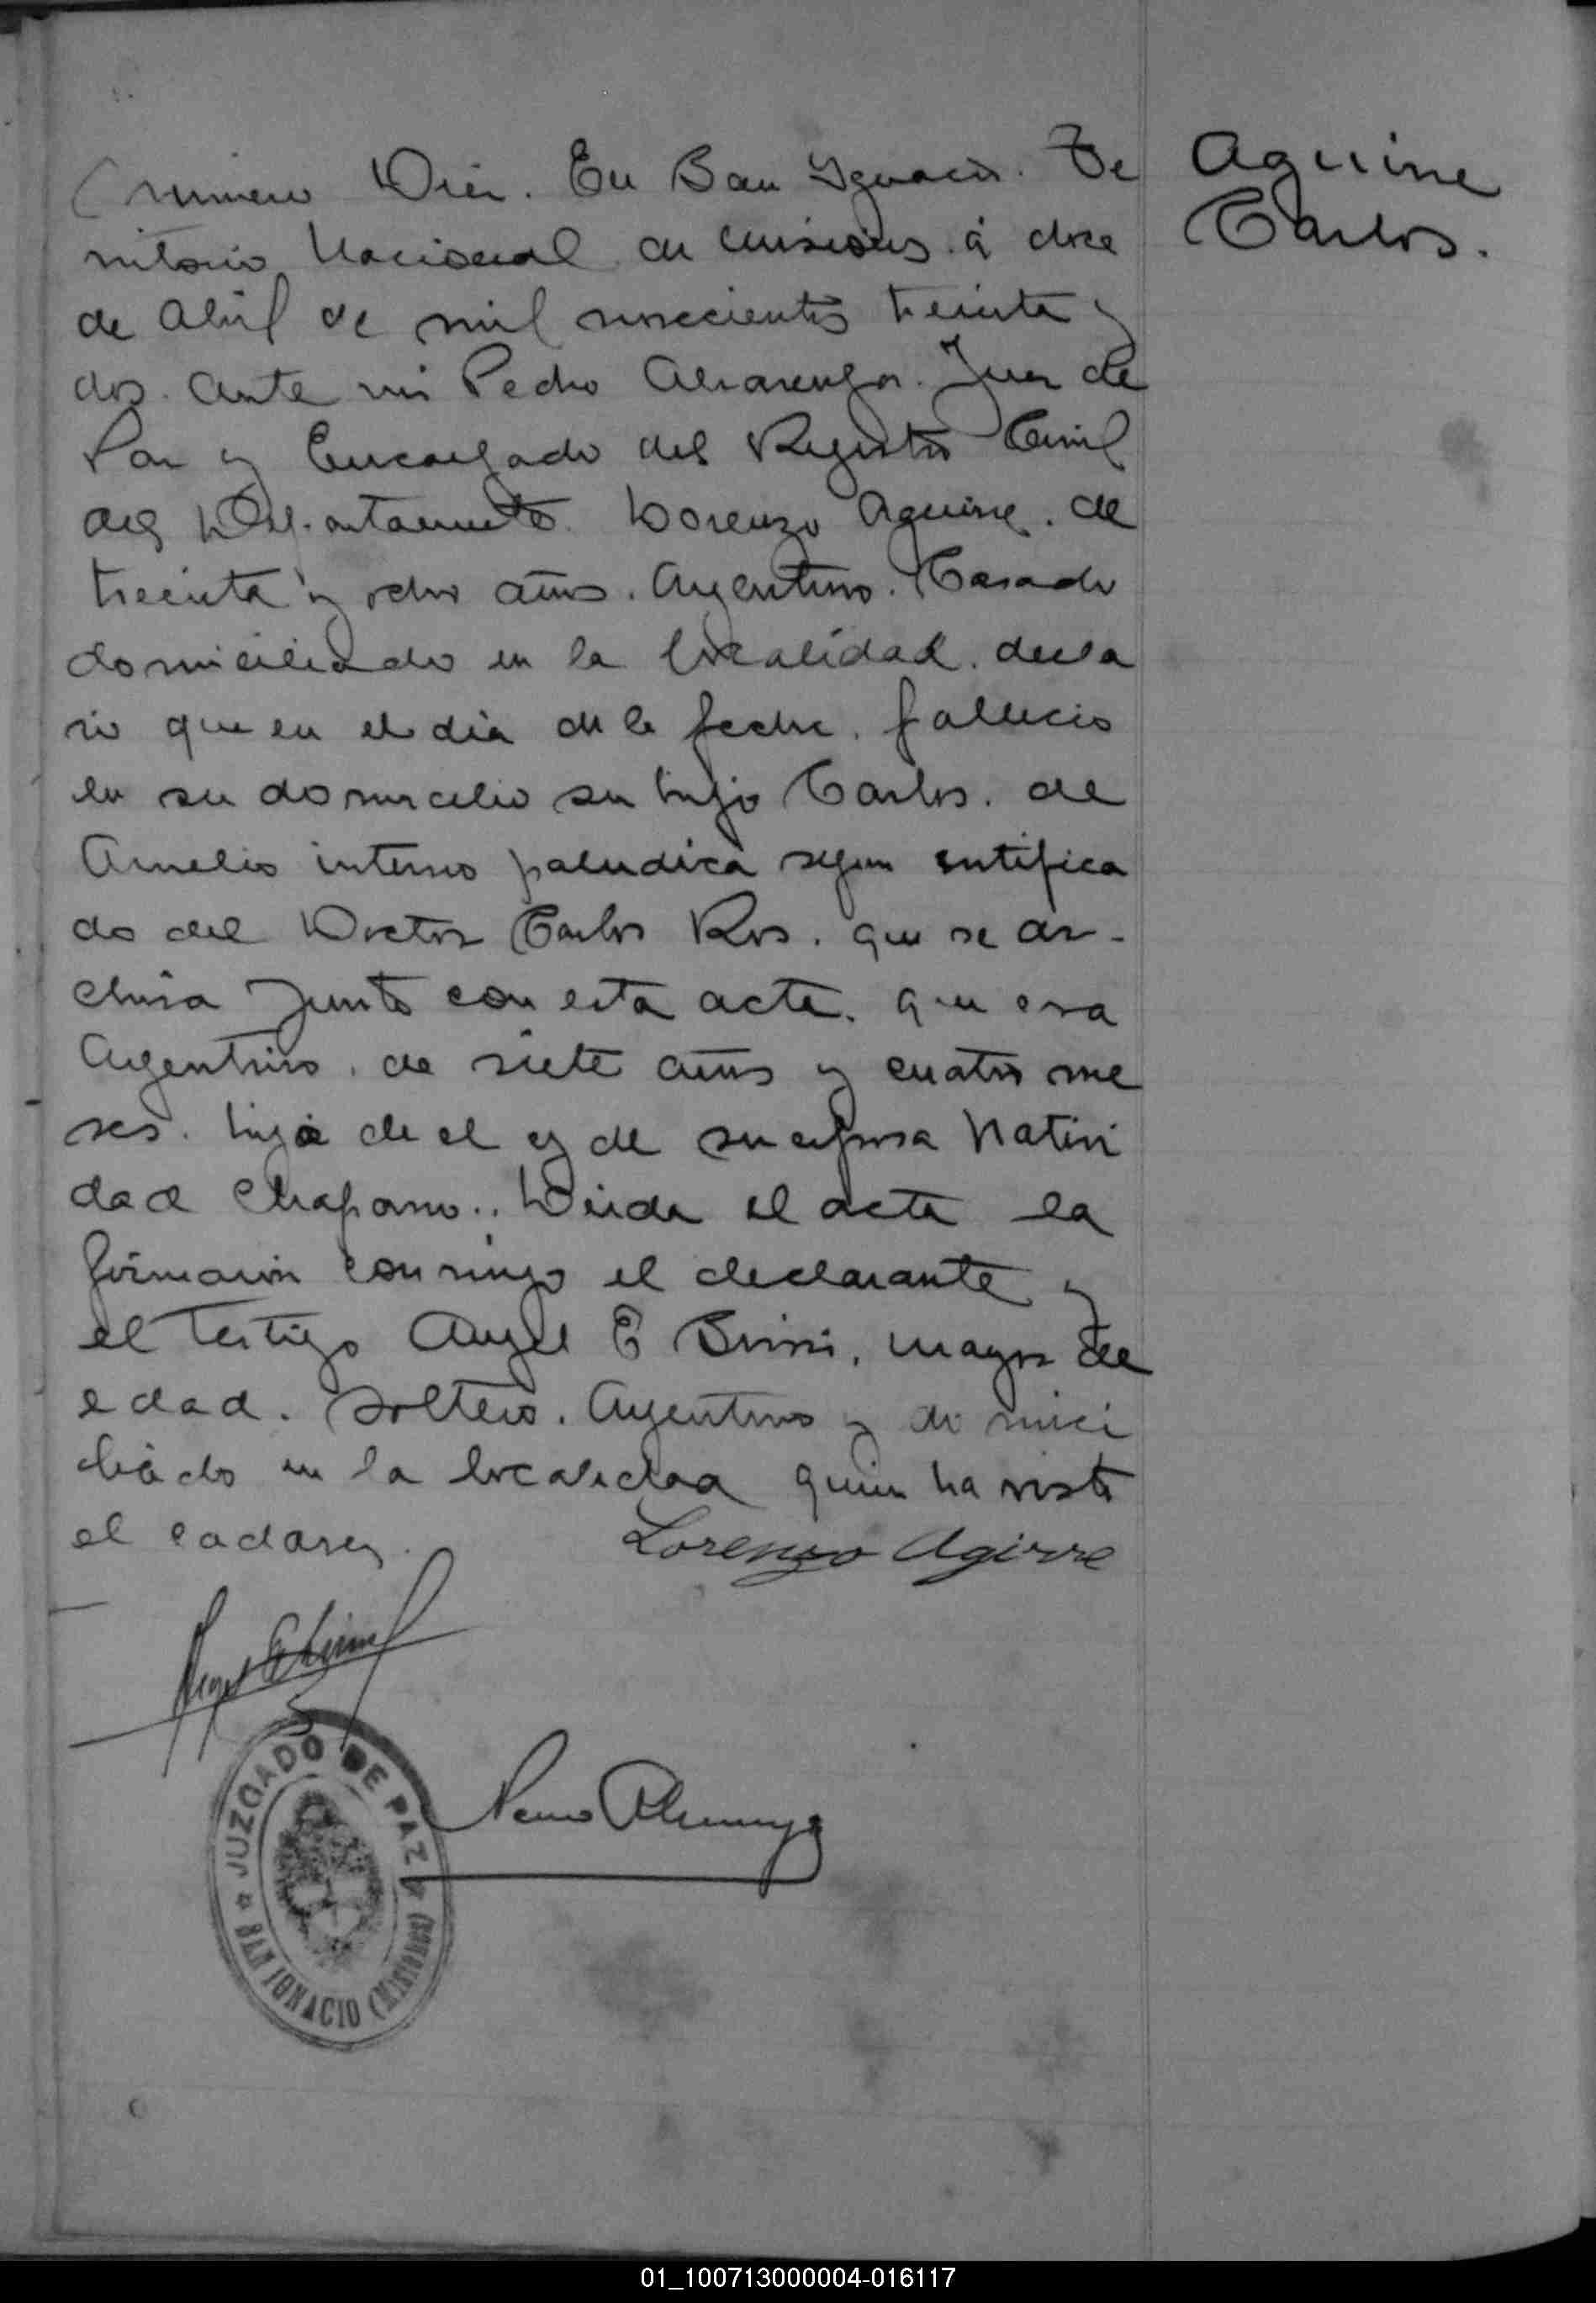 Aguirre
Carlos.
Numero Diez. En San Ignacio. Te
rritorio Nacional de Misiones. á doce
de Abril de mil novecientos treinta y
dos. Ante mi Pedro Alvarenga. Juez de
Paz y Encargado del Registro Civil
del Departamento. Lorenzo Aguirre. de
treinta y ocho años. Argentino. Casado
domiciliado en la localidad. decla
ró que en el dia de la fecha. fallecio
en su domicilio su hijo Carlos. de
interno paludica segun certifica
do del Doctor Carlos Ros. que se ar-
chiva junto con esta acta. que era
Argentino. de siete años y cuatro me
ses. hijo de el y de su esposa Nativi
dad Chaparro.. Leida el acta la
firmaron conmigo el declarante y
el testigo Angel E mayor de
edad. soltero. Argentino y domici
liado en la localidad quien ha visto
el cadaver.
Lorenzo Agirre
Pedro Alvarenga
JUZGADO DE PAZ
SAN IGNACIO (MISIONES)
01_100713000004-016117